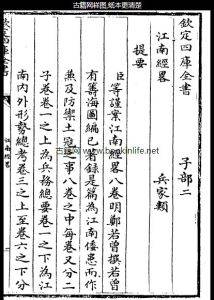 古籍网样图,纸本更清楚
欽定四庫全書 子部二
江南經略 兵家類
提要
臣等謹案江南經略八卷明鄭若曾撰若曾
有籌海圖編已著録是篇為江南倭患而作
兼及防禦土寇之事八卷之中每卷又分二
子卷卷一之上為兵務總要卷一之下為江
南内外形勢總考卷二之上至卷六之下分
欽定四庫全書
江南經略
www.bookinlife.net